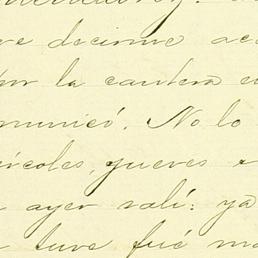 ve decirme
por la cantera
municó. No lo
ércoles, jueves
ayer salí: ya
tuve fué